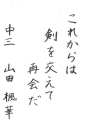 これからは
剣を交えて
再会だ
中三 山田 楓華